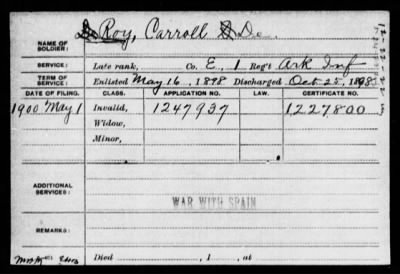 Roy, Carroll De.
NAME OF SOLDIER:
SERVICE: Late rank, Co. E, 1 Reg't Ark Inf
TERM OF SERVICE: Enlisted May 16, 1898 Discharged Oct. 25, 1898
DATE OF FILING. CLASS. APPLICATION NO. LAW. CERTIFICATE NO.
1900 May 1 Invalid, 1247937 1227800
Widow,
Minor,
ADDITIONAL SERVICES:
WAR WITH SPAIN
REMARKS:
Died , 1 , at